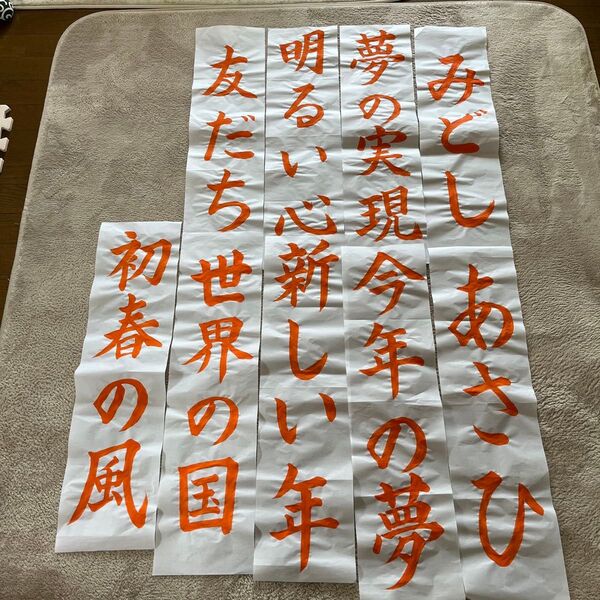 みどし
夢の実現
明るい心
友だち
あさひ
今年の夢
新しい年
世界の国
初春の風